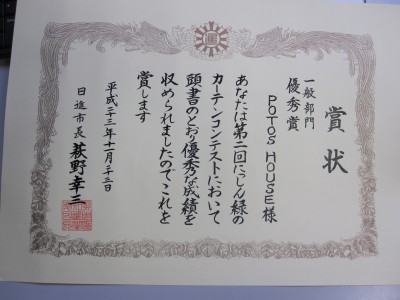 賞状
一般部門
優秀賞
POTOS HOUSE様
あなたは第二回にっしん緑の
カーテンコンテストにおいて
頭書のとおり優秀な成績を
収められましたのでこれを
賞します
平成二十三年十一月二十三日
日進市長 萩野幸三